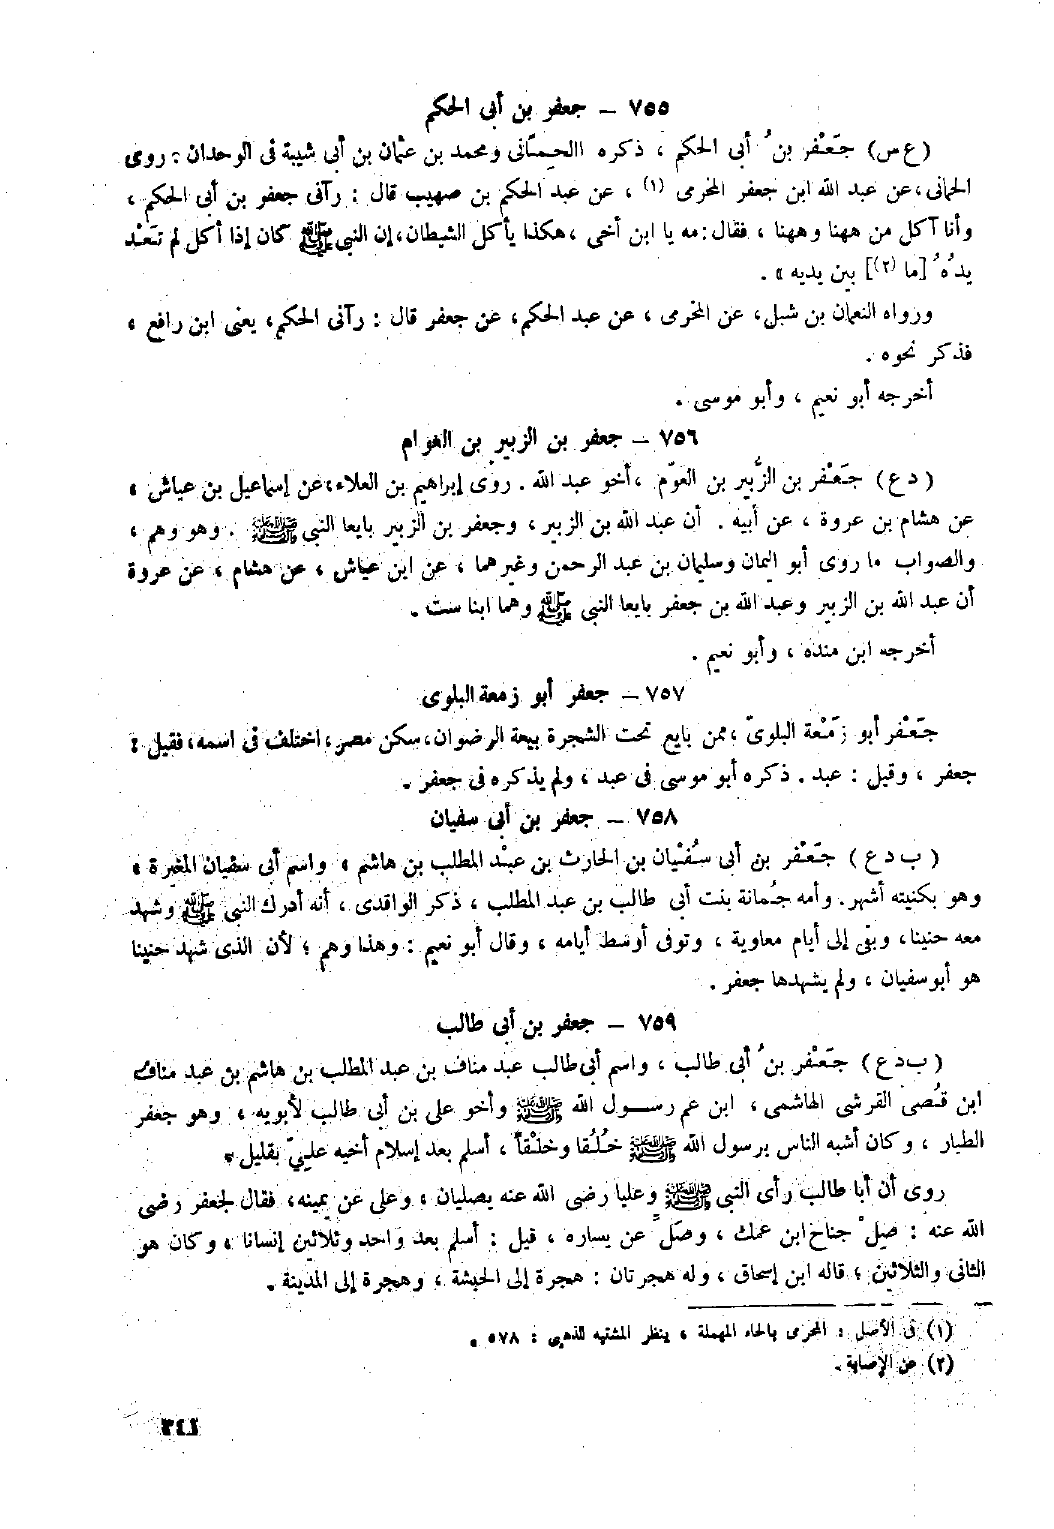 ٧٥٥ – جعفر بن أبى الحكم
(ع س) جَعْفر بنُ أبى الحكم ، ذكره الحِمّانى ومحمد بن عثمان بن أبى شيبة فى الوحدان : روى
الحمانى، عن عبد الله ابن جعفر المخرمى (١) ، عن عبد الحكم بن صهيب قال : رآنى جعفر بن أبى الحكم ،
وأنا آكل من ههنا وههنا ، فقال: مه يا ابن أخى ، هكذا يأكل الشيطان، إن النبى ﷺ كان إذا أكل لم تَعْدُ
يدُهُ [ما (٢)] بين يديه » .
ورواه النعمان بن شبل، عن المخرمى ، عن عبد الحكم، عن جعفر قال : رآنى الحكم، يعنى ابن رافع ،
فذكر نحوه .
أخرجه أبو نعيم ، وأبو موسى .
٧٥٦ – جعفر بن الزبير بن العوام
(د ع) جَعْفر بن الزُّبير بن العوّم ، أخو عبد الله . روى إبراهيم بن العلاء، عن إسماعيل بن عياش ،
عن هشام بن عروة ، عن أبيه . أن عبد الله بن الزبير ، وجعفر بن الزبير بايعا النبى ﷺ . وهو وهم ،
والصواب ما روى أبو اليمان وسليمان بن عبد الرحمن وغيرهما ، عن ابن عياش ، عن هشام ، عن عروة
أن عبد الله بن الزبير وعبد الله بن جعفر بايعا النبى ﷺ وهما ابنا ست .
أخرجه ابن منده ، وأبو نعيم .
٧٥٧ – جعفر أبو زمعة البلوى
جَعْفر أبو زَمْعة البلوىّ ، ممن بايع تحت الشجرة بيعة الرضوان، سكن مصر، اختلف فى اسمه، فقيل :
جعفر ، وقيل : عبد . ذكره أبو موسى فى عبد ، ولم يذكره فى جعفر .
٧٥٨ – جعفر بن أبى سفيان
(ب د ع) جَعْفر بن أبى سُفْيان بن الحارث بن عبْد المطلب بن هاشم ، واسم أبى سفيان المغيرة ،
وهو بكنيته أشهر. وأمه جُمانة بنت أبى طالب بن عبد المطلب ، ذكر الواقدى ، أنه أدرك النبى ﷺ وشهد
معه حنينا، وبقى إلى أيام معاوية ، وتوفى أوسط أيامه ، وقال أبو نعيم : وهذا وهم ؛ لأن الذى شهد حنينا
هو أبو سفيان ، ولم يشهدها جعفر .
٧٥٩ – جعفر بن أبى طالب
(ب د ع) جَعْفر بنُ أبى طالب ، واسم أبى طالب عبد مناف بن عبد المطلب بن هاشم بن عبد مناف
ابن قُصى القرشى الهاشمى ، ابن عم رسول الله ﷺ وأخو على بن أبى طالب لأبويه ، وهو جعفر
الطيار ، وكان أشبه الناس برسول الله ﷺ خُلُقا وخَلْقاً ، أسلم بعد إسلام أخيه علىّ بقليل .
روى أن أبا طالب رأى النبى ﷺ وعليا رضى الله عنه يصليان ، وعلى عن يمينه، فقال لجعفر رضى
الله عنه : صِلْ جناح ابن عمك ، وصَلِّ عن يساره ، قيل : أسلم بعد واحد وثلاثين إنسانا ، وكان هو
الثانى والثلاثين ؛ قاله ابن إسحاق ، وله هجرتان : هجرة إلى الحبشة ، وهجرة إلى المدينة .
(١) فى الأصل : المحرمى بالحاء المهملة ، ينظر المشتبه للذهبى : ٥٧٨ .
(٢) عن الإصابة .